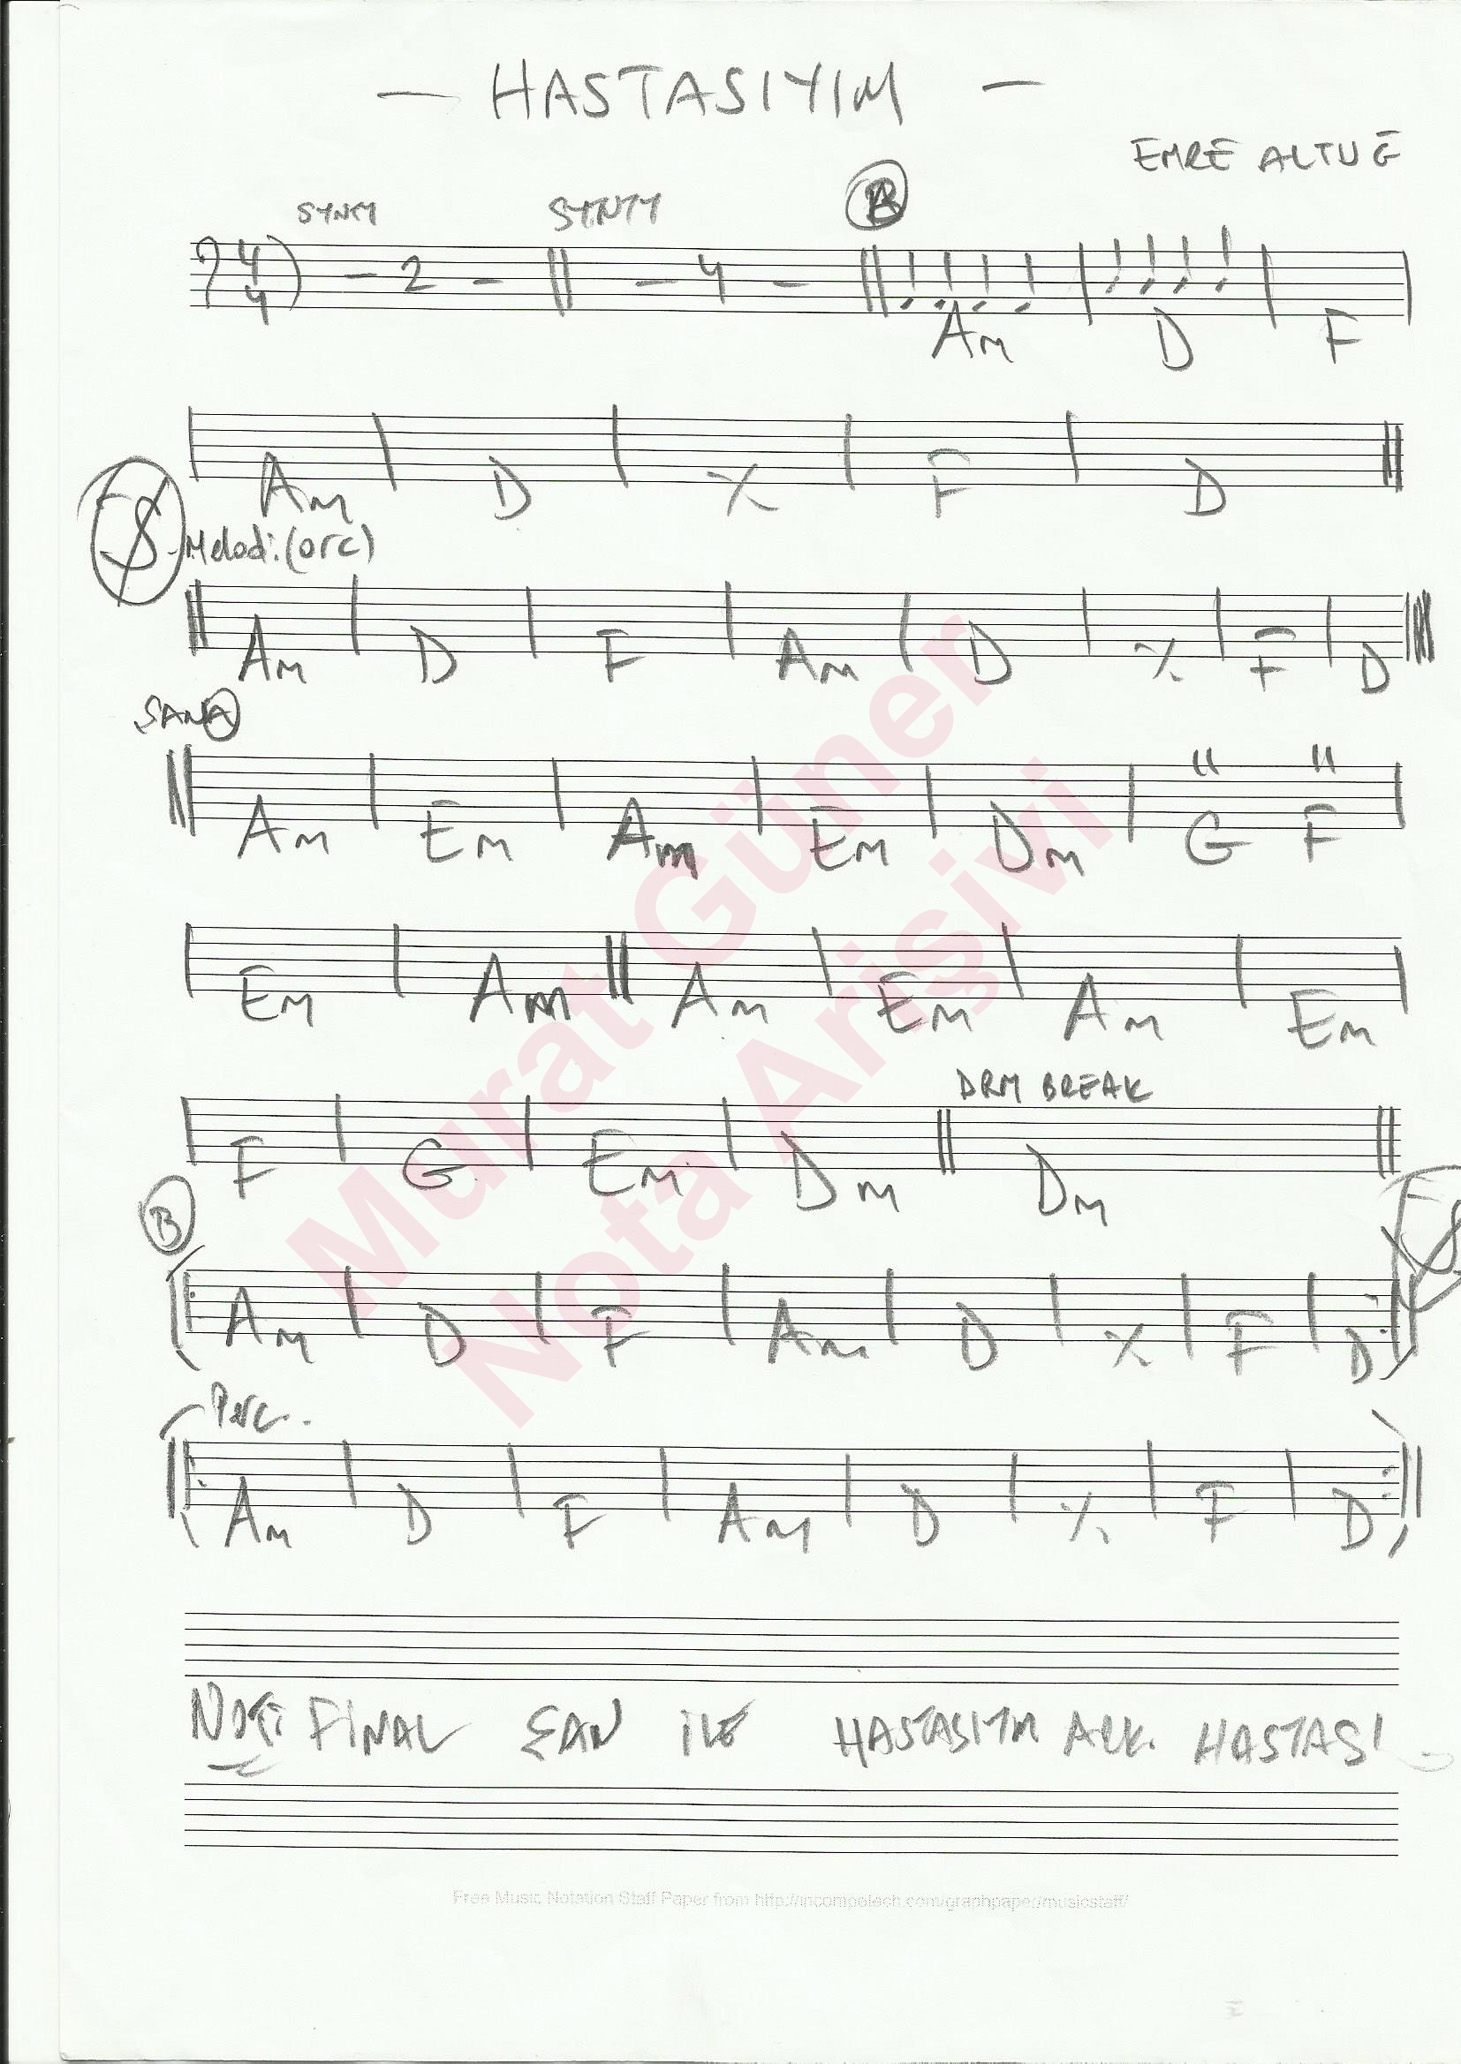 - HASTASIYIM -
EMRE ALTUĞ
SYNTH SYNTH A
4/4 - 2 - - 4 -
Am D F
Am D % F D
Melodi (orc)
Am D F Am D % F D
A
Am Em Am Em Dm G F
Em Am Am Em Am Em
DRM BREAK
F G Em Dm Dm
B
Am D F Am D % F D
Perc.
Am D F Am D % F D
NOT: FINAL ŞAN İLE HASTASIYIM ALK. HASTASI
Free Music Notation Staff Paper from http://incompetech.com/graphpaper/musicstaff/
Murat Güner
Nota Arişivi